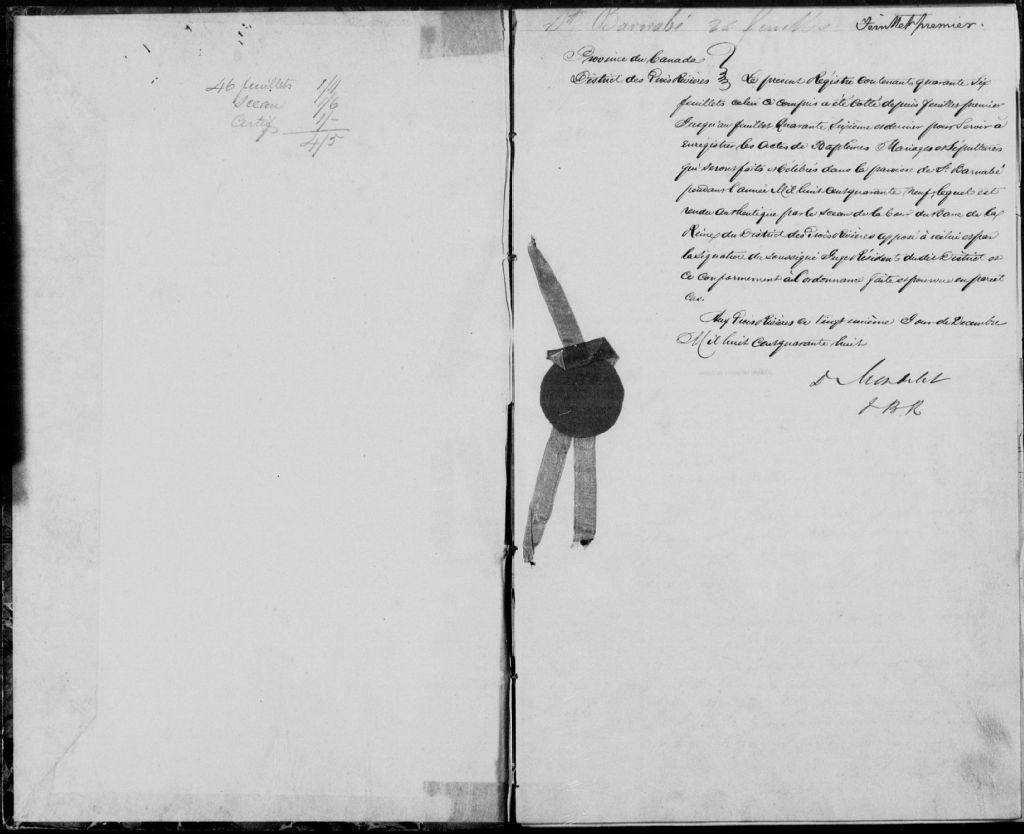 46 feuillets 1/4
Sceau 1/6
Certif 1/-
4/5
St Barnabé feuillets
Feuillet premier.
Province du Canada
District des Trois Rivières } Le present Régistre contenant quarante Six
feuillets celui ci compris a été Cotté depuis feuillet premier
Jusqu'au feuillet Quarante Sixième et dernier pour Servir à
enregistrer les Actes de Baptêmes Mariages et Sépultures
qui seront faits et célébrés dans la paroisse de St. Barnabé
pendant l'année Mil huit cent quarante neuf, lequel est
rendu Authentique par le Sceau de la Cour du Banc de la
Reine du District des Trois Rivières apposé à icelui et par
la Signature du Soussigné Juge Résident du dit District et
ce conformement à l'ordonnance faite et pourvue en pareil
cas.
Aux Trois Rivières ce Vingt unième Jour de Decembre
Mil huit cent quarante huit
D Mondelet
J B R